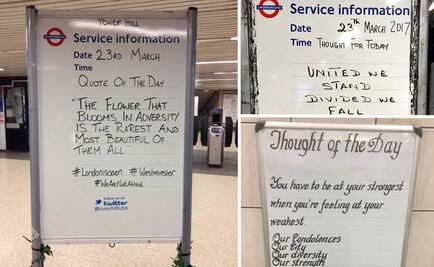 TOWER HILL
UNDERGROUND
Service information
Date 23RD MARCH
Time
QUOTE OF THE DAY
"THE FLOWER THAT
BLOOMS IN ADVERSITY
IS THE RAREST AND
MOST BEAUTIFUL OF
THEM ALL"
#Londonisopen #Westminster
#WeAreNotAfraid
follow us on
twitter
@towerhilltube
UNDERGROUND
Service information
Date 23TH MARCH 2017
Time THOUGHT FOR TODAY
UNITED WE
STAND
DIVIDED WE
FALL
Thought of the Day
You have to be at your strongest
when you're feeling at your
weakest.
Our Condolences
Our City
Our diversity
Our strength